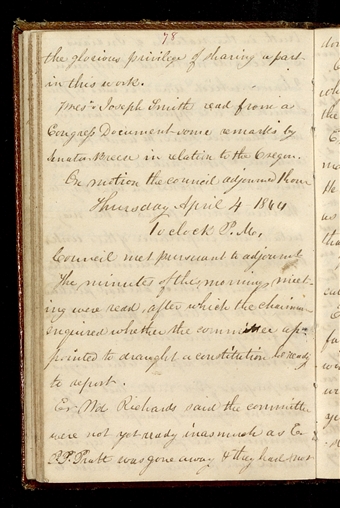 78
the glorious privilege of sharing a part
in this work.
Pres. Joseph Smith read from a
Congress Document some remarks by
Senator Breese in relation to the Oregon.
On motion the council adjourned 1 hour
Thursday April 4 1844
1 oclock P.M.
Council met pursuant to adjournt
The minutes of the morning meet-
ing were read, after which the chairman
enquired whether the committee ap-
pointed to draught a constitution were ready
to report.
Er Wd. Richards said the committee
were not yet ready inasmuch as Er
P.P. Pratt was gone away & they had not